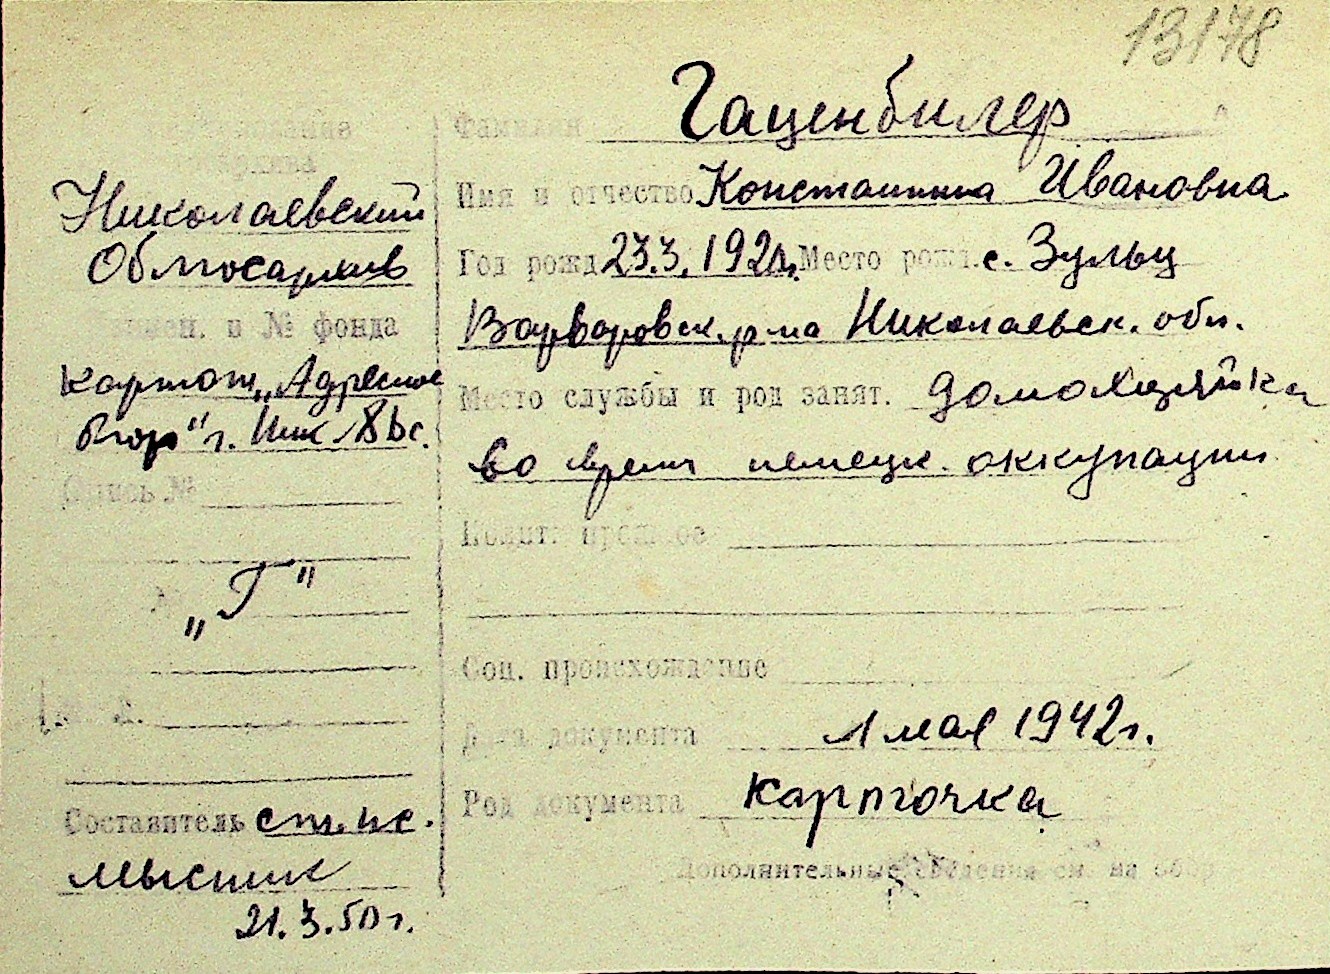 13178
Фамилия Гаценбилер
Имя и отчество Константина Ивановна
Год рожд 23.3.192 г. Место рожд. с. Зульц
Варваровск. р-на Николаевск. обл.
Место службы и род занят. домохозяйка
во время немецк. оккупации
Полит. прошлое
Соц. происхождение
Дата документа 1 мая 1942 г.
Род документа карточка
Дополнительные сведения см. на обор
Николаевский
Облгосархив
и № фонда
картот. „Адресное
бюро" г. Ник
Опись №
„Г"
Составитель ст. н.с.
Мысник
21.3.50 г.